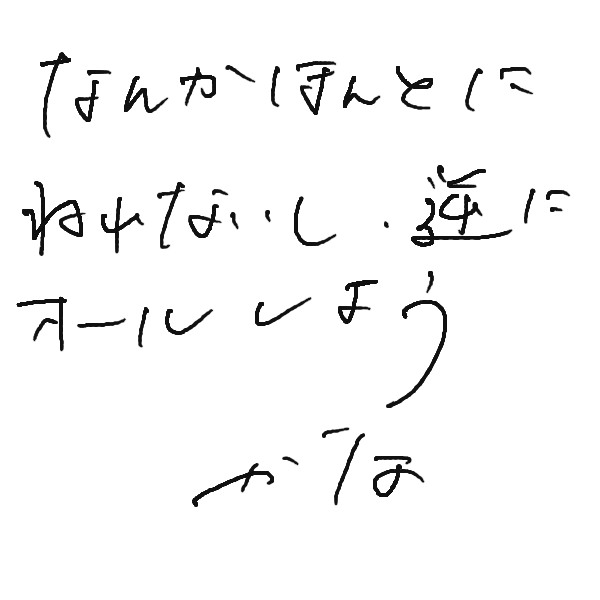 なんかほんとに
ねれないし、逆に
オールしよう
かな